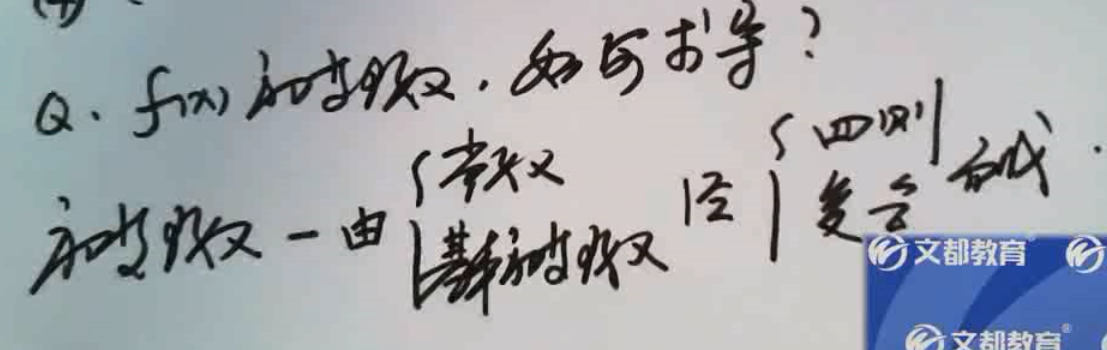 Q. f(x) 初等函数, 如何求导?
初等函数 - 由 { 常数 基本初等函数 经 { 四则 复合 而成.
文都教育
文都教育®